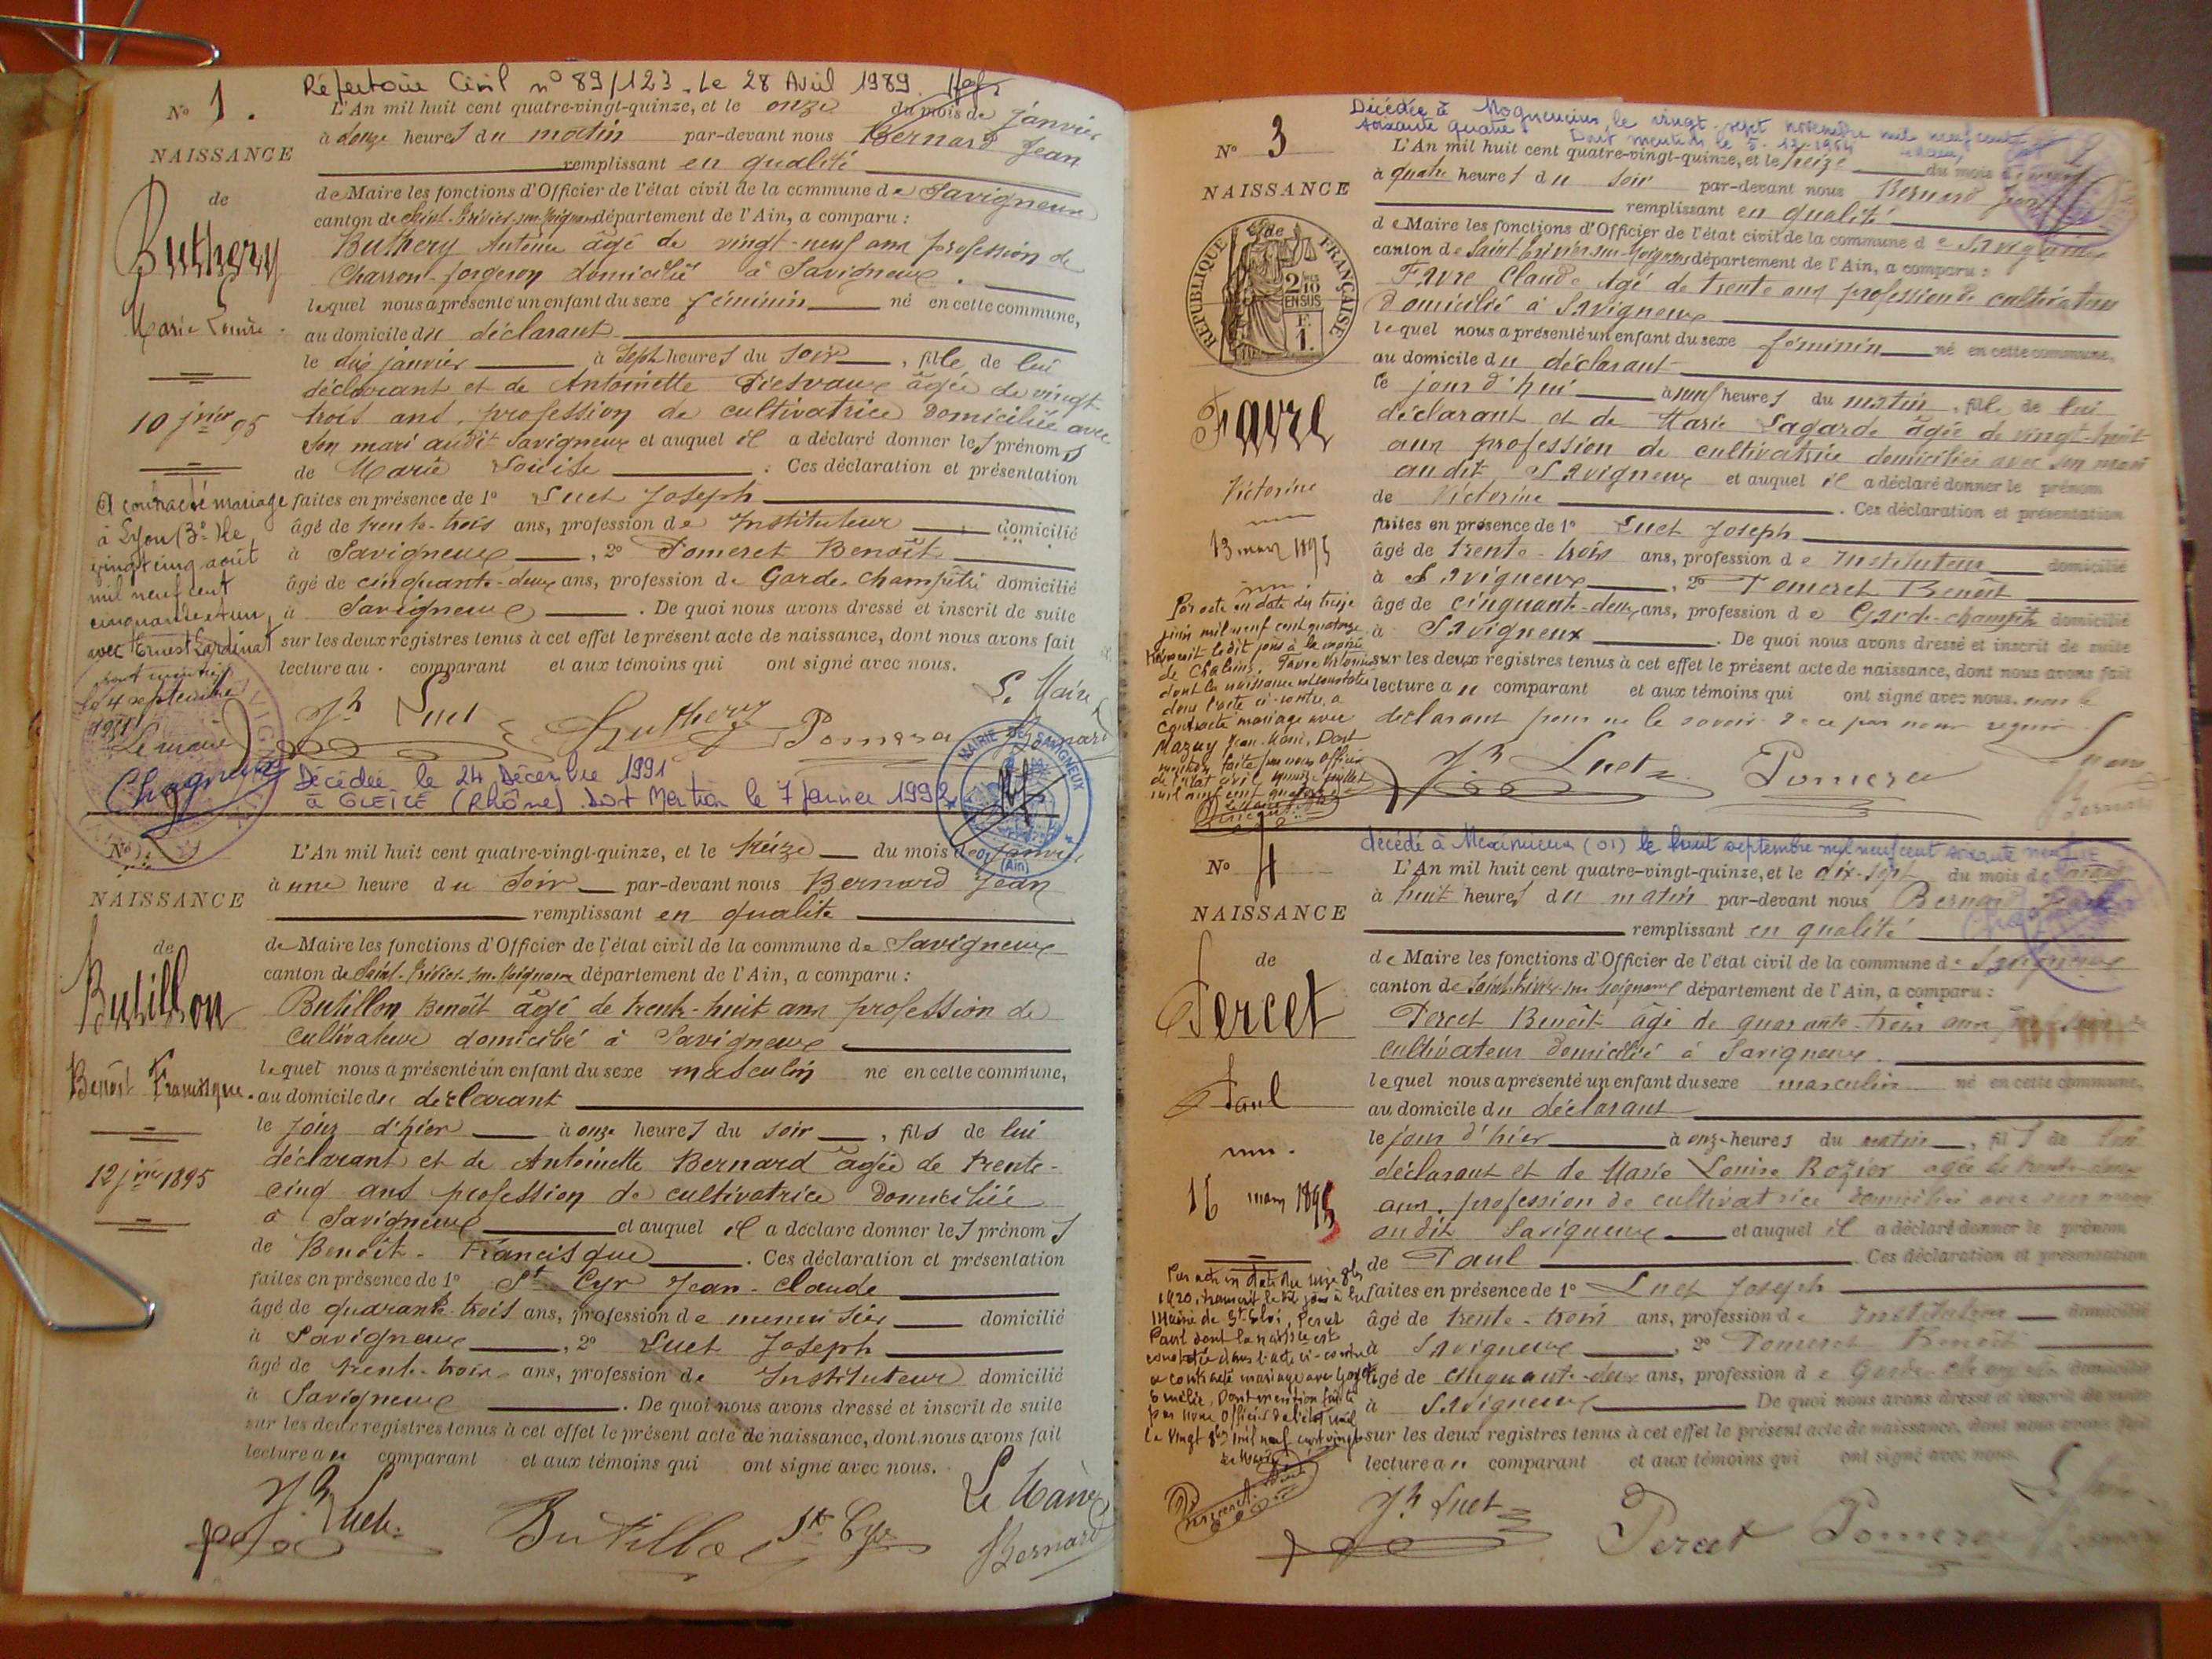 Répertoire Civil n° 89/123. Le 28 Avril 1989.
N° 1.
NAISSANCE
de
Buthery
Marie Louise.
10 jvier 95
A contracté mariage
à Lyon (3e) le
vingt cinq août
mil neuf cent
cinquante et un,
avec Ernest Cardinat
dont mention
le 4 septembre
1951
Le maire
L'An mil huit cent quatre-vingt-quinze, et le onze du mois de janvier
à douze heures du matin par-devant nous Bernard Jean
remplissant en qualité
de Maire les fonctions d'Officier de l'état civil de la commune de Savigneux
canton de Saint-Trivier-sur-Moignans département de l'Ain, a comparu :
Buthery Antoine âgé de vingt-neuf ans profession de
Charron-forgeron domicilié à Savigneux.
lequel nous a présenté un enfant du sexe féminin né en cette commune,
au domicile du déclarant
le dix janvier à sept heures du soir, fille de lui
déclarant et de Antoinette âgée de vingt
trois ans, profession de cultivatrice domiciliée avec
son mari audit Savigneux et auquel il a déclaré donner les prénoms
de Marie Louise. Ces déclaration et présentation
faites en présence de 1° Luet Joseph
âgé de trente-trois ans, profession de Instituteur, domicilié
à Savigneux, 2° Pomeret Benoît
âgé de cinquante-deux ans, profession de Garde Champêtre domicilié
à Savigneux. De quoi nous avons dressé et inscrit de suite
sur les deux registres tenus à cet effet le présent acte de naissance, dont nous avons fait
lecture au comparant et aux témoins qui ont signé avec nous.
Le Maire
Jh Luet Buthery Pomera Bernard
Décédée le 24 Décembre 1991
à GLEIZE (Rhône). Dont Mention le 7 Janvier 1992
MAIRIE DE SAVIGNEUX
(Ain)
N°
NAISSANCE
de
Butillon
Benoît Francisque.
12 jvier 1895
L'An mil huit cent quatre-vingt-quinze, et le treize du mois de janvier
à une heure du soir par-devant nous Bernard Jean
remplissant en qualité
de Maire les fonctions d'Officier de l'état civil de la commune de Savigneux
canton de Saint-Trivier-sur-Moignans département de l'Ain, a comparu :
Butillon Benoît âgé de trente-huit ans profession de
cultivateur domicilié à Savigneux
lequel nous a présenté un enfant du sexe masculin né en cette commune,
au domicile du déclarant
le jour d'hier à onze heures du soir, fils de lui
déclarant et de Antoinette Bernard âgée de trente-
cinq ans profession de cultivatrice domiciliée
à Savigneux et auquel il a déclaré donner les prénoms
de Benoît-Francisque. Ces déclaration et présentation
faites en présence de 1° St Cyr Jean-Claude
âgé de quarante-trois ans, profession de menuisier domicilié
à Savigneux, 2° Luet Joseph
âgé de trente-trois ans, profession de Instituteur domicilié
à Savigneux. De quoi nous avons dressé et inscrit de suite
sur les deux registres tenus à cet effet le présent acte de naissance, dont nous avons fait
lecture au comparant et aux témoins qui ont signé avec nous.
Le Maire
Jh Luet Butillon St Cyr Bernard
Décédée à le vingt-sept novembre mil neuf cent
soixante quatre. Dont mention le 5.12.1964
N° 3
NAISSANCE
RÉPUBLIQUE FRANÇAISE
2/10 EN SUS
F. 1.
Favre
Victorine
13 mars 1895
Par acte en date du treize
juin mil neuf cent quatorze
transcrit ledit jour à la mairie
de Chaleins, Favre Victorine
dont la naissance est constatée
dans l'acte ci-contre, a
contracté mariage avec
Mazuy Jean Marie, Dont
mention faite par nous Officier
de l'état civil, quinze juillet
mil neuf cent quatorze
L'An mil huit cent quatre-vingt-quinze, et le treize du mois de mars
à quatre heures du soir par-devant nous Bernard Jean
remplissant en qualité
de Maire les fonctions d'Officier de l'état civil de la commune de Savigneux
canton de Saint-Trivier-sur-Moignans département de l'Ain, a comparu :
Favre Claude âgé de trente ans profession de cultivateur
domicilié à Savigneux
lequel nous a présenté un enfant du sexe féminin né en cette commune,
au domicile du déclarant
le jour d'hui à neuf heures du matin, fille de lui
déclarant et de Marie Lagarde âgée de vingt-huit
ans profession de cultivatrice domiciliée avec son mari
audit Savigneux et auquel il a déclaré donner le prénom
de Victorine. Ces déclaration et présentation
faites en présence de 1° Luet Joseph
âgé de trente-trois ans, profession de Instituteur domicilié
à Savigneux, 2° Pomeret Benoît
âgé de cinquante-deux ans, profession de Garde-champêtre domicilié
à Savigneux. De quoi nous avons dressé et inscrit de suite
sur les deux registres tenus à cet effet le présent acte de naissance, dont nous avons fait
lecture au comparant et aux témoins qui ont signé avec nous, non le
déclarant pour ne le savoir de ce par nous requis.
Jh Luet Pomera
Bernard
décédé à Meximieux (01) le huit septembre mil neuf cent soixante neuf
N° 4
NAISSANCE
de
Percet
Paul
16 mars 1895
Par acte en date du seize 8bre
1920, transcrit le dit jour à la
Mairie de St Eloi, Percet
Paul dont la naissance est
constatée dans l'acte ci-contre
a contracté mariage avec
Dont mention faite
par nous Officier de l'état civil
le vingt 8bre mil neuf cent vingt
Le Maire
L'An mil huit cent quatre-vingt-quinze, et le dix-sept du mois de mars
à huit heures du matin par-devant nous Bernard Jean
remplissant en qualité
de Maire les fonctions d'Officier de l'état civil de la commune de Savigneux
canton de Saint-Trivier-sur-Moignans département de l'Ain, a comparu :
Percet Benoît âgé de quarante-trois ans, profession de
cultivateur domicilié à Savigneux.
lequel nous a présenté un enfant du sexe masculin né en cette commune,
au domicile du déclarant
le jour d'hier à onze heures du matin, fils de lui
déclarant et de Marie Louise Rozier âgée de trente-deux
ans, profession de cultivatrice domiciliée avec son mari
audit Savigneux et auquel il a déclaré donner le prénom
de Paul. Ces déclaration et présentation
faites en présence de 1° Luet Joseph
âgé de trente-trois ans, profession de Instituteur domicilié
à Savigneux, 2° Pomeret Benoît
âgé de cinquante-deux ans, profession de Garde champêtre domicilié
à Savigneux. De quoi nous avons dressé et inscrit de suite
sur les deux registres tenus à cet effet le présent acte de naissance, dont nous avons fait
lecture au comparant et aux témoins qui ont signé avec nous.
Jh Luet Percet Pomera